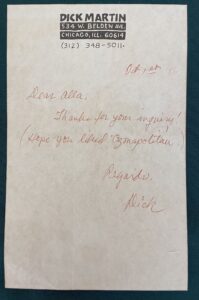 DICK MARTIN
534 W. BELDEN AVE.
CHICAGO, ILL. 60614
(312) 348-5011.
Oct 1st
Dear Alla,
Thanks for your inquiry!
(Hope you liked "Ozmapolitan"
Regards,
Dick